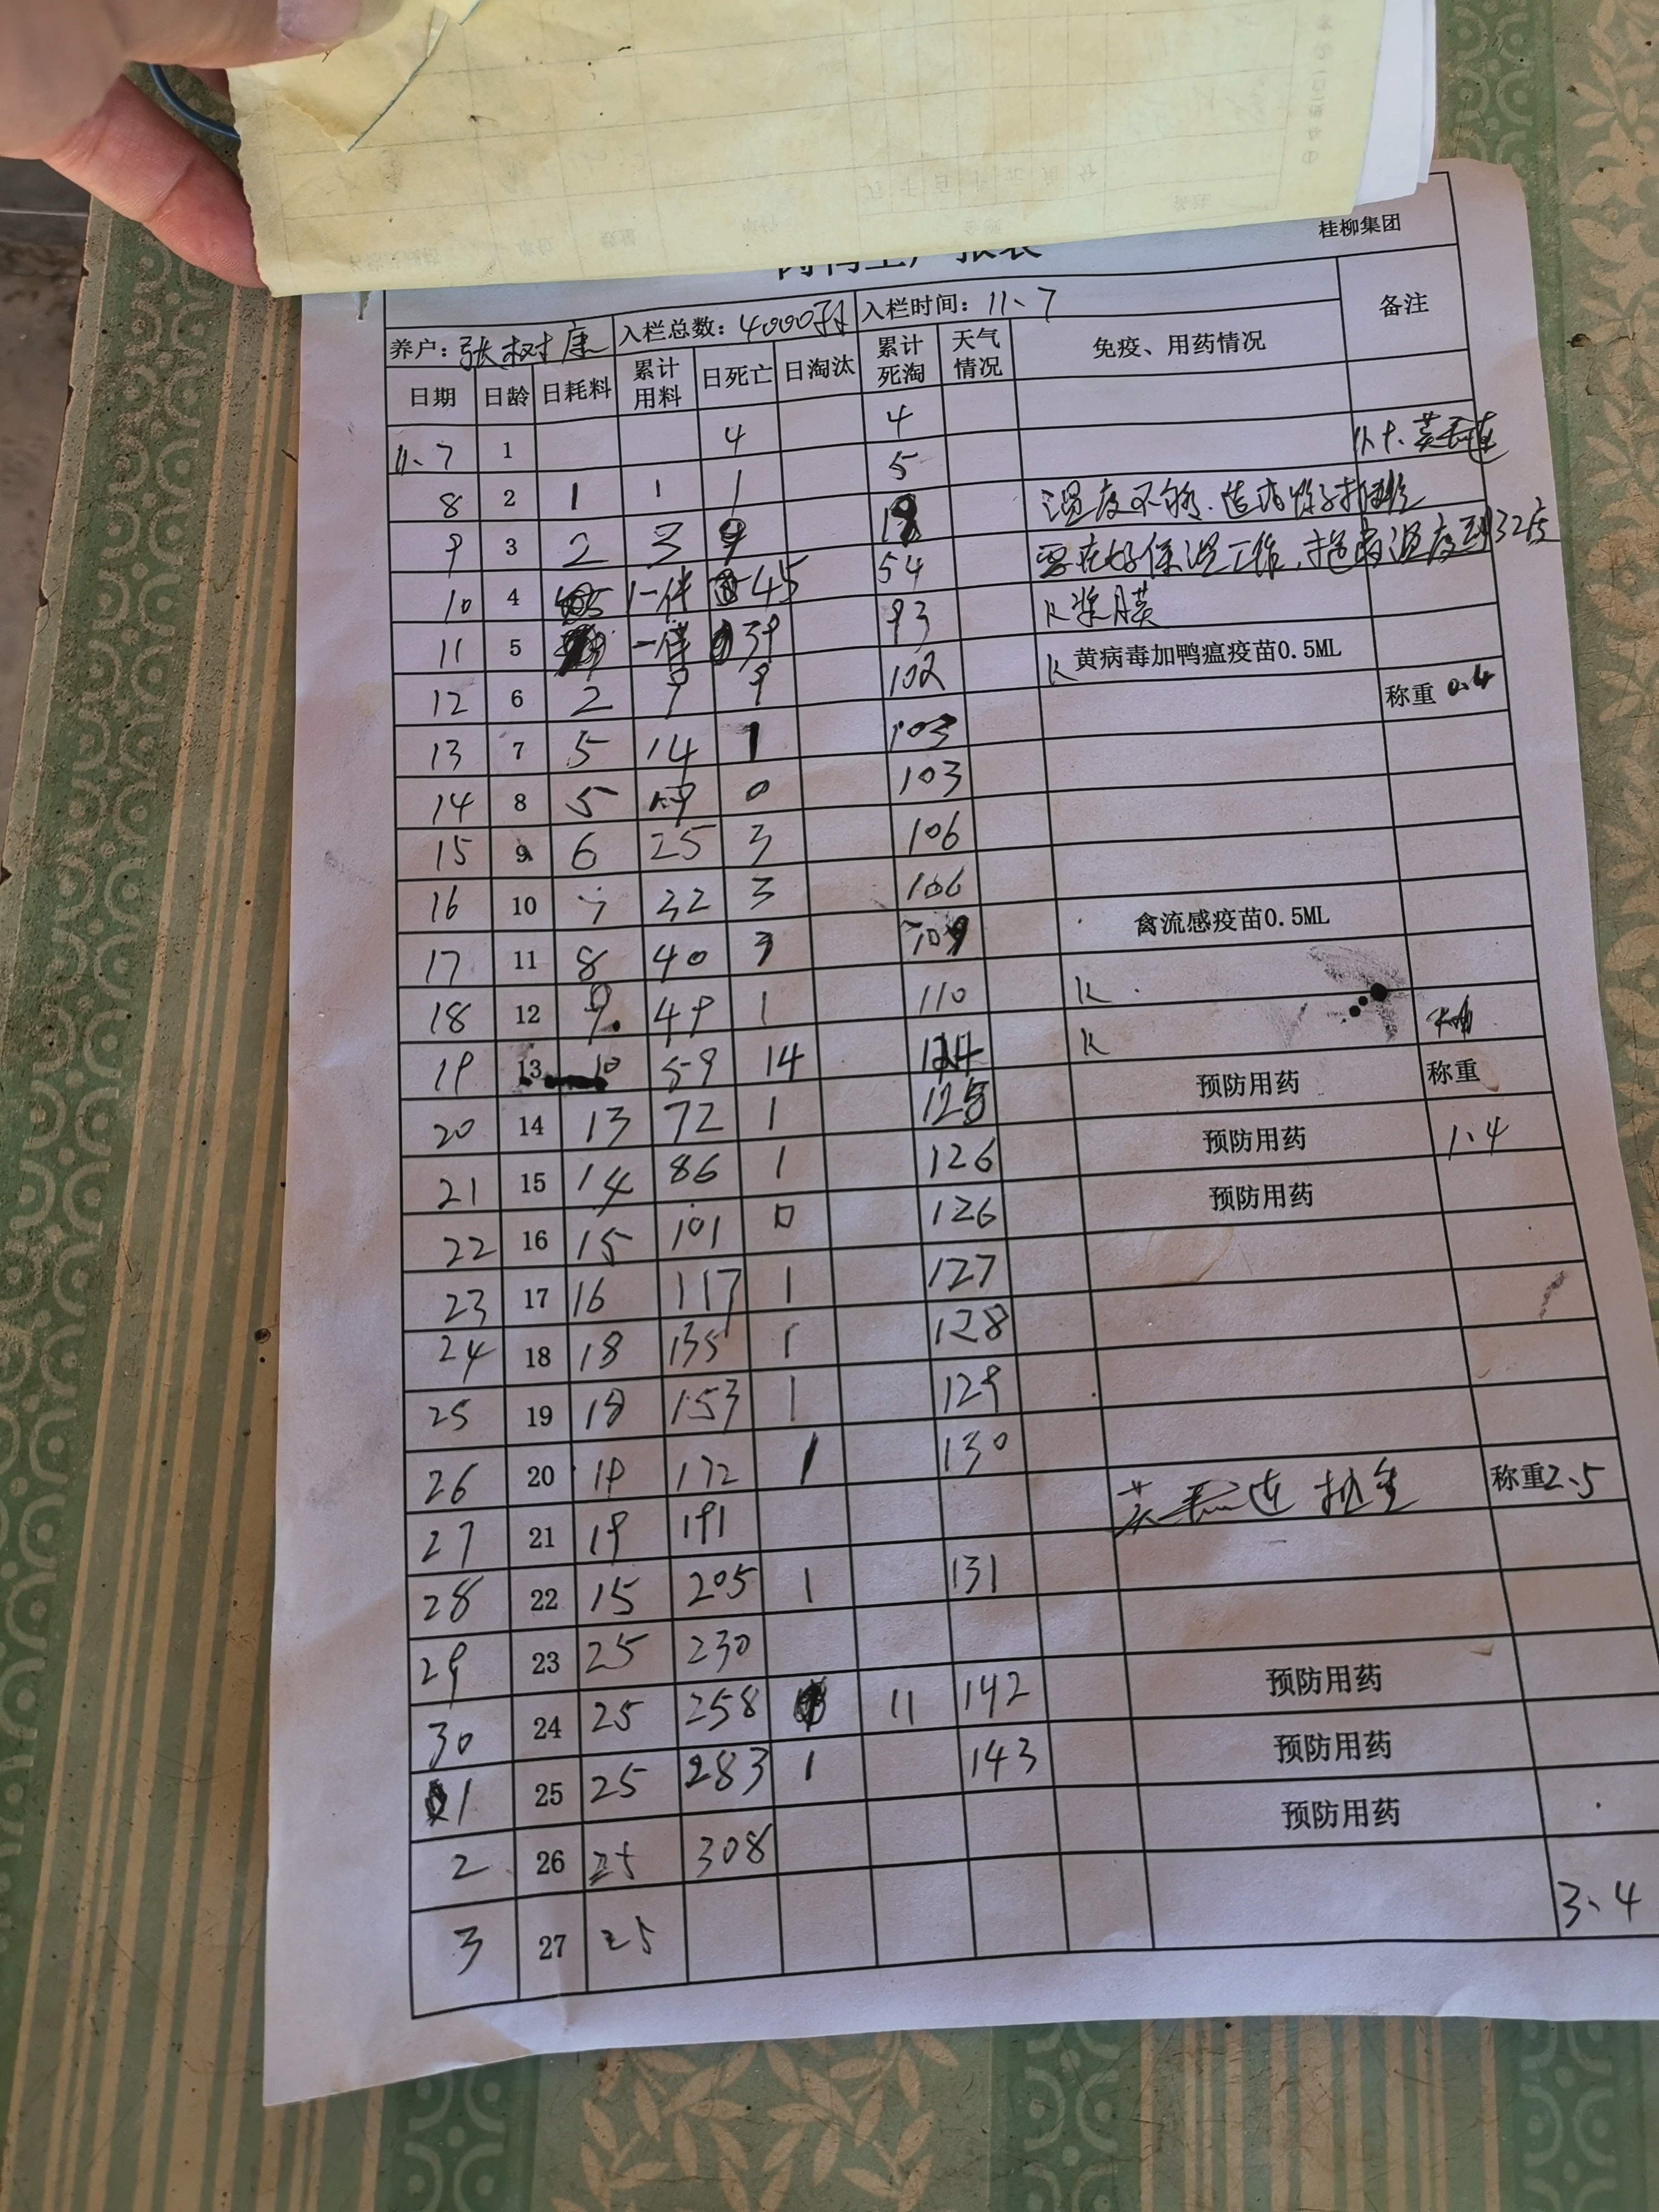 桂柳集团
养户：张树康 入栏总数：4000羽 入栏时间：11、7 备注
日期 日龄 日耗料 累计用料 日死亡 日淘汰 累计死淘 天气情况 免疫、用药情况
11、7 1 4 4
8 2 1 1 1 5
9 3 2 3 9 温度不够
10 4 45 54 保温工作 温度到32度
11 5 39 93 K浆膜
12 6 2 9 9 102 K 黄病毒加鸭瘟疫苗0.5ML
13 7 5 14 1 103 称重 0.4
14 8 5 19 0 103
15 9 6 25 3 106
16 10 7 32 3 106
17 11 8 40 3 109 禽流感疫苗0.5ML
18 12 9 49 1 110 K
19 13 10 59 14 124 K
20 14 13 72 1 125 预防用药 称重
21 15 14 86 1 126 预防用药 1.4
22 16 15 101 0 126 预防用药
23 17 16 117 1 127
24 18 18 135 1 128
25 19 18 153 1 129
26 20 19 172 1 130
27 21 19 191 称重2.5
28 22 15 205 1 131
29 23 25 230
30 24 25 258 11 142 预防用药
1 25 25 283 1 143 预防用药
2 26 25 308 预防用药
3 27 25 3.4